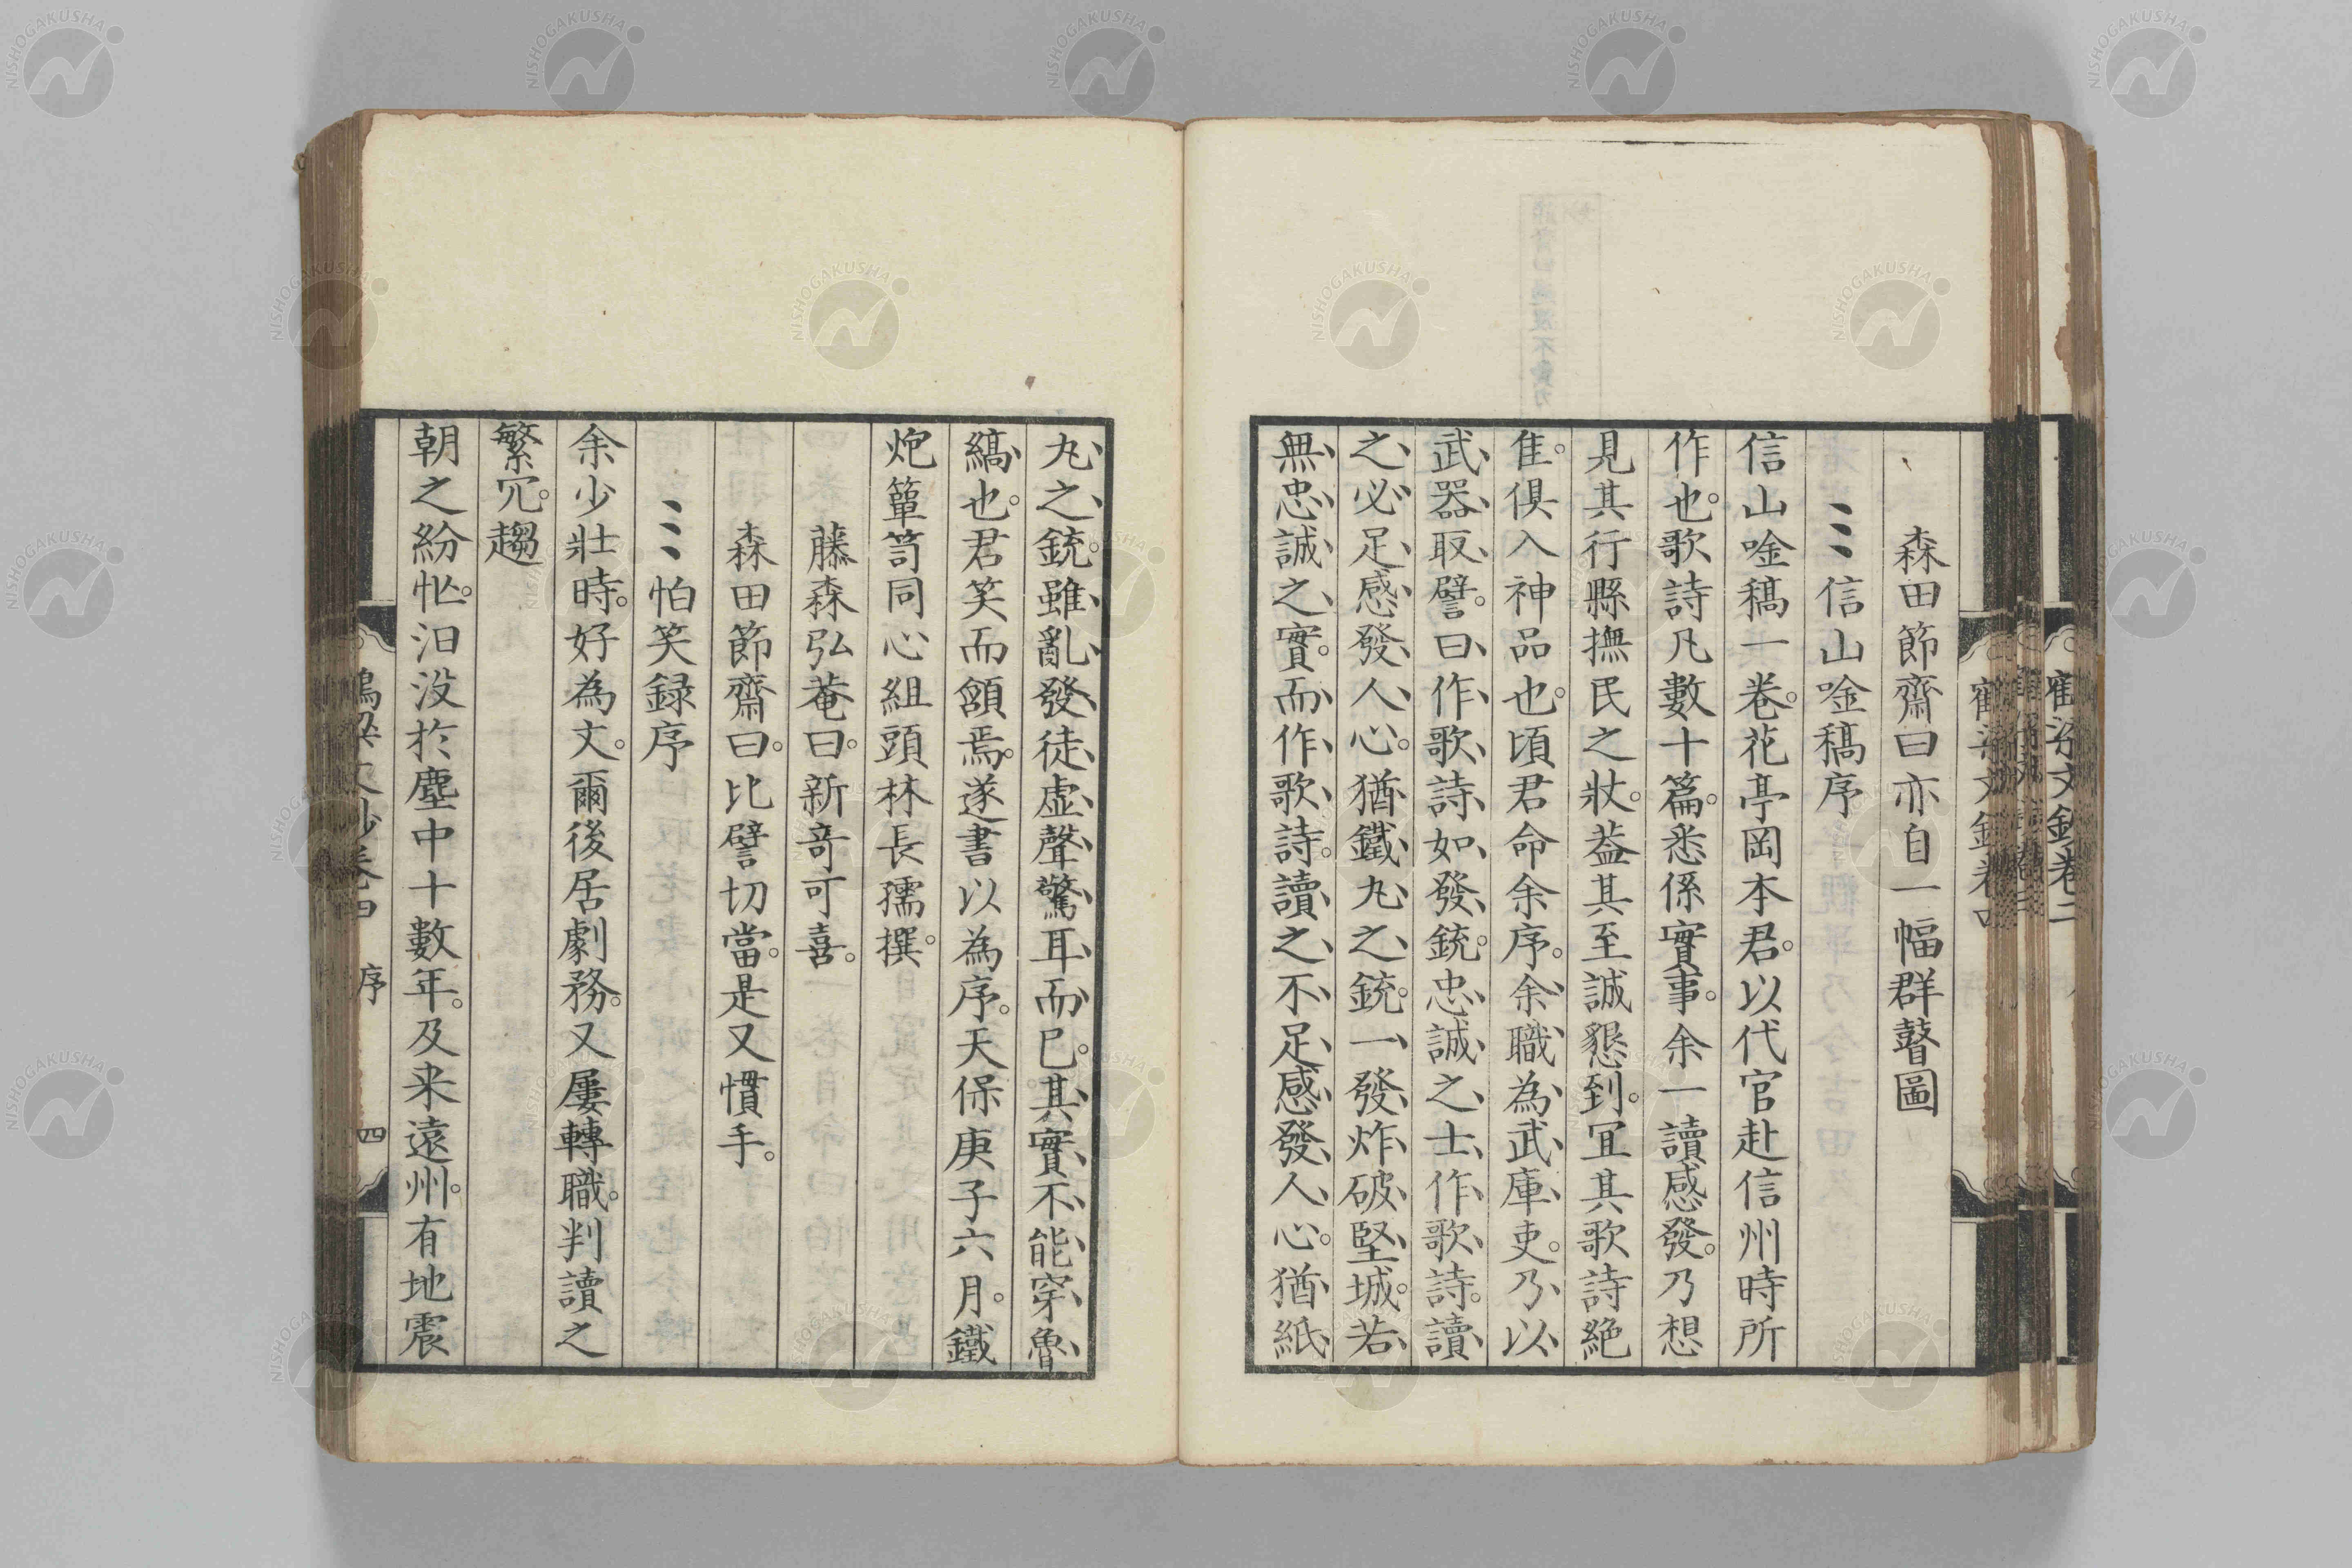 森田節齋曰亦自一幅群瞽圖
信山唫稿序
信山唫稿一卷。花亭岡本君。以代官赴信州時所
作也。歌詩凡數十篇。悉係實事。余一讀感發。乃想
見其行縣撫民之狀。葢其至誠懇到。冝其歌詩絶
隹。俱入神品也。頃君命余序。余職為武庫吏。乃以
武器取譬。曰作歌詩如發銃。忠誠之士作歌詩。讀
之必足感發人心。猶鐵丸之銃。一發炸破堅城。若
無忠誠之實。而作歌詩。讀之不足感發人心。猶紙
丸之銃。雖亂發徒虚聲驚耳而已。其實不能穿魯
縞也。君笑而頷焉。遂書以為序。天保庚子六月。鐵
炮簞笥同心組頭林長孺撰。
藤森弘菴曰。新竒可喜。
森田節齋曰。比譬切當。是又慣手。
怕笑録序
余少壯時。好為文。爾後居劇務。又屢轉職。判讀之
繁冗。趨
朝之紛忙。汨没於塵中十數年。及来遠州。有地震
序
四
鶴梁文鈔卷四
鶴梁文鈔卷二
NISHOGAKUSHA